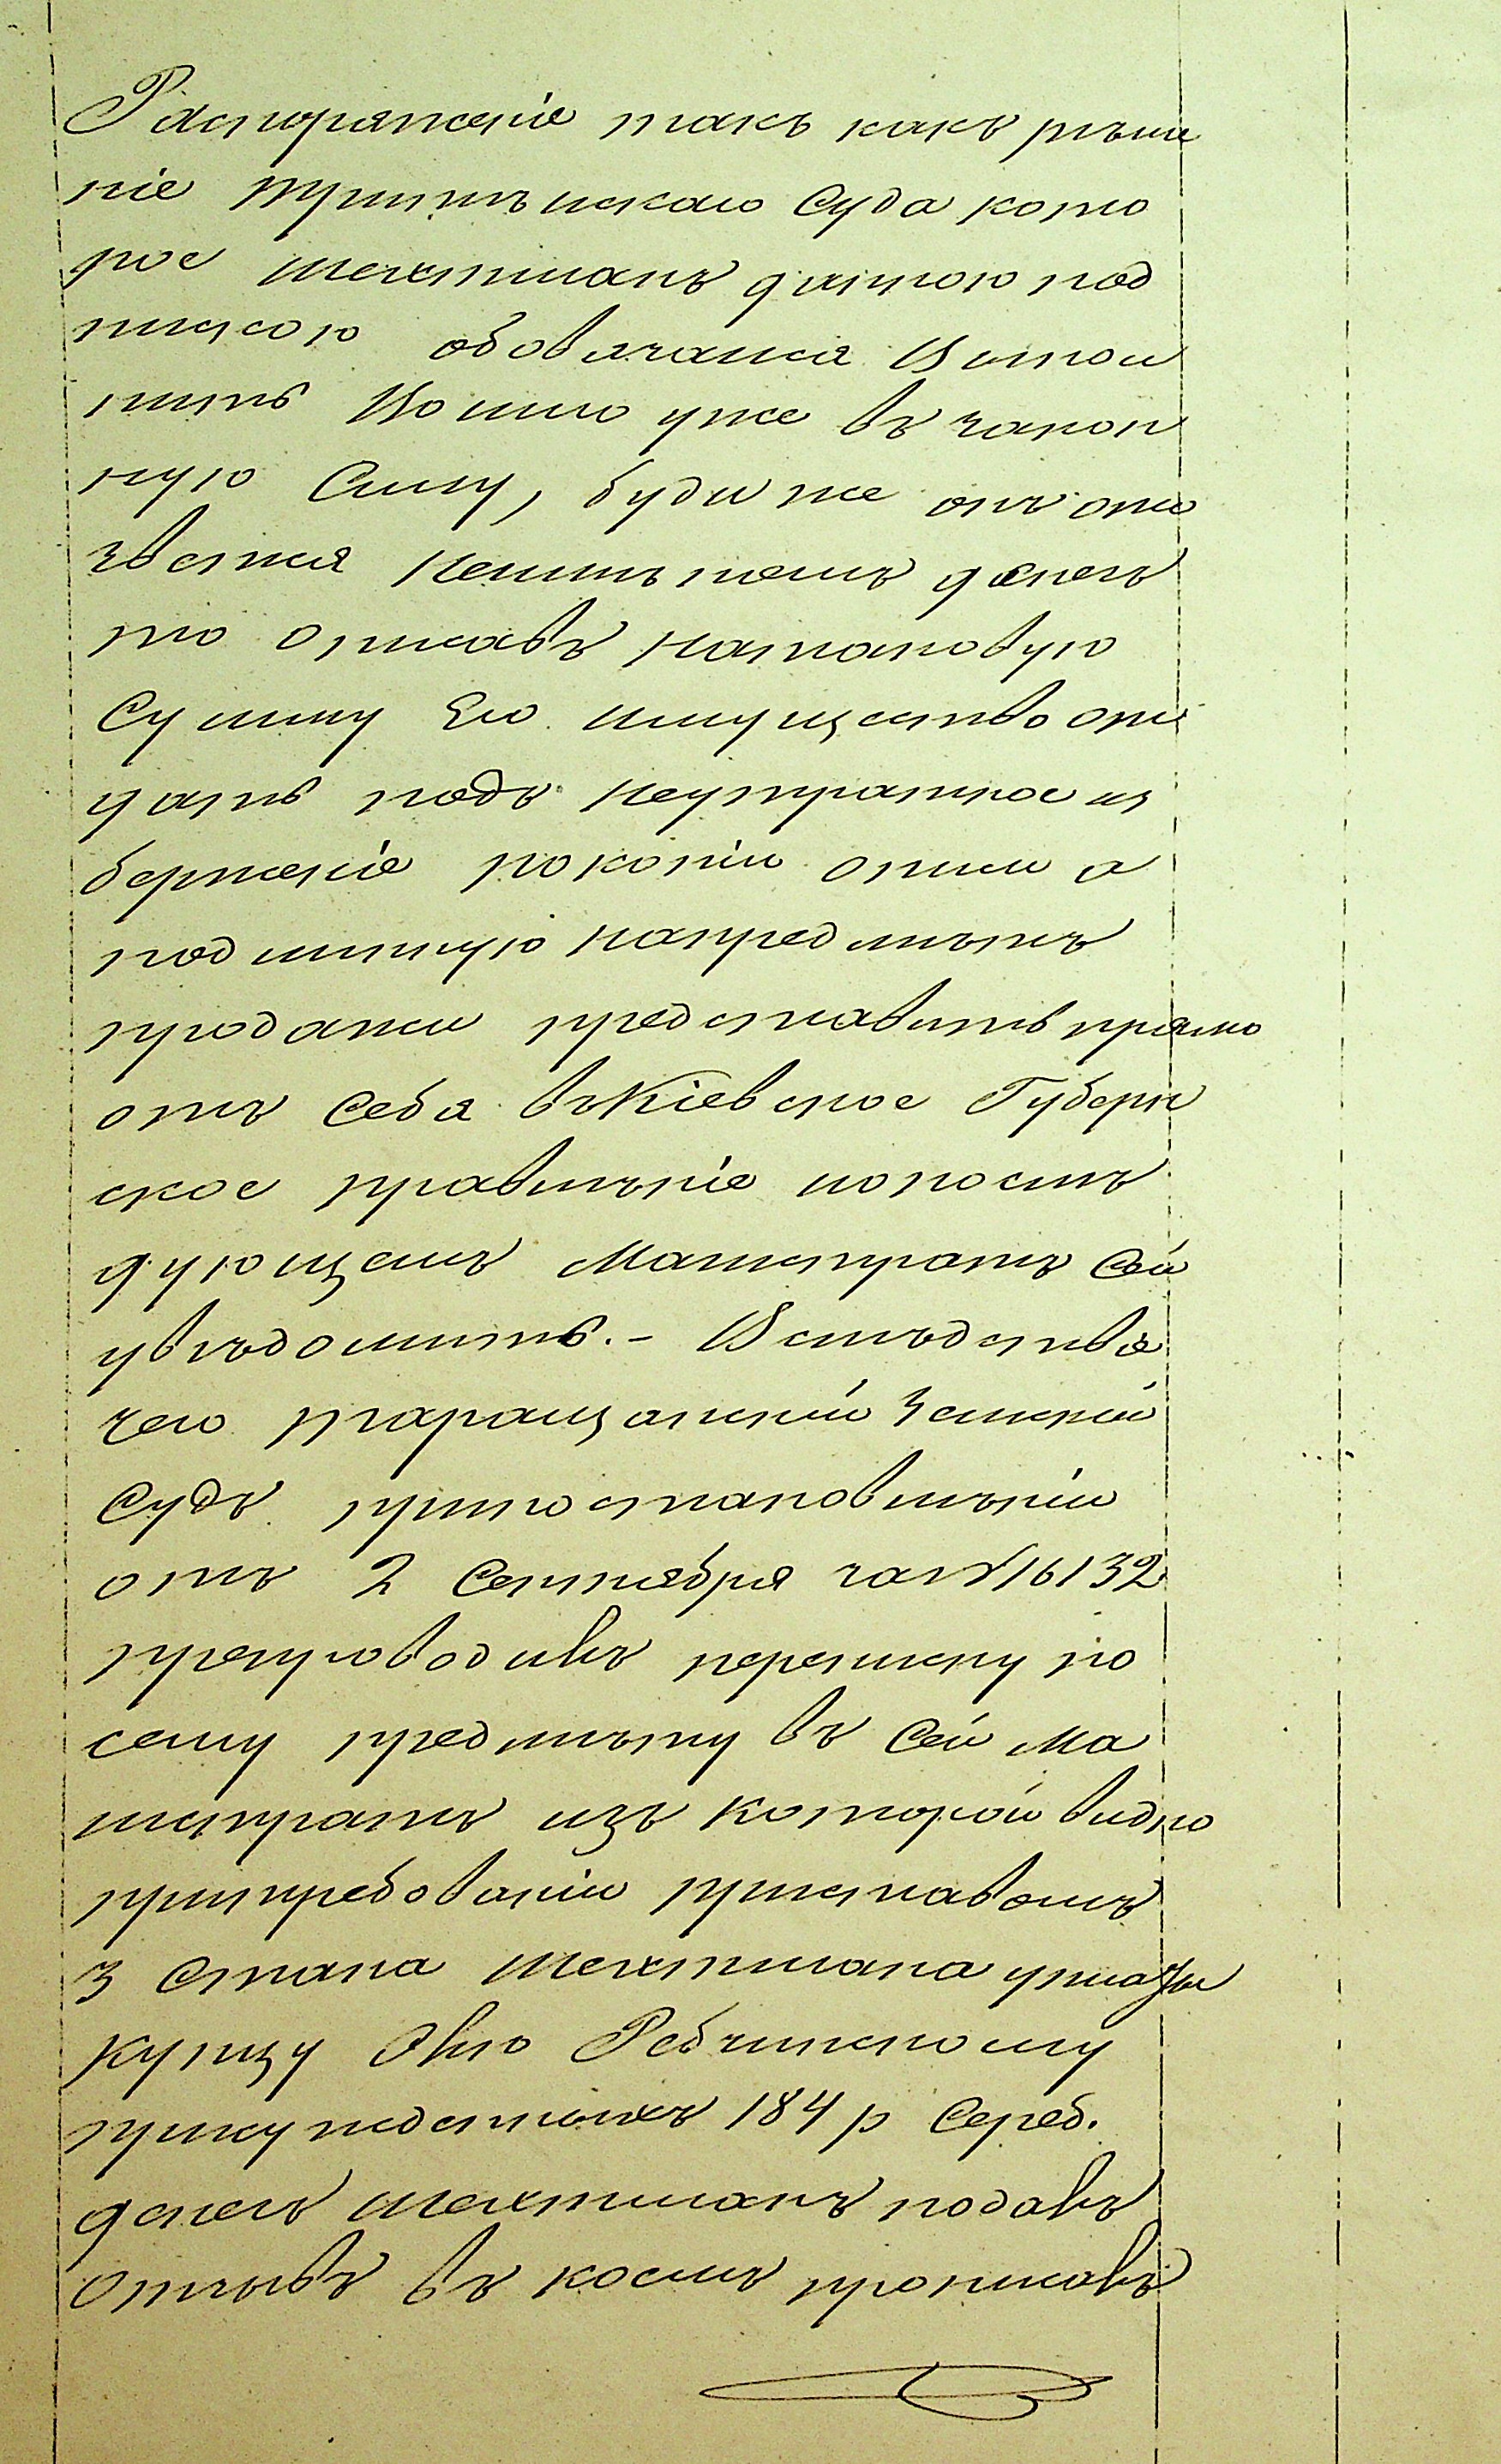 Распоряженіе такъ какъ рѣше
ніе Третѣйскаго Суда кото
рое Шехтманъ данною под
пискою обовязался Выпол
нить Вошло уже въ закон
ную Силу, буди же онъ ока
звется Неимѣнемъ денегъ
то описавъ Натаковую
Сумму Его имущество от
дать подъ Неутратное из
бержение покопіи описи а
подлинную напредмѣтъ
продажи представить прямо
отъ Себя въ Кіевское Губерн
ское правленіе ипослѣ
дующемъ Магистратъ Сей
увѣдомить. - Вслѣдствіе
чего Таращанскій Земскій
Судъ припостановленіи
отъ 2 Сентября за № 16132
препроводивъ переписку по
сему предмѣту въ Сей Ма
гистратъ изъ которой видно
притребованіи приставомъ
3 Стана Шехтмана уплаты
купцу Овше Ребчинскому
присужденныхъ 184 р Сереб.
денегъ Шехтманъ подавъ
отзывъ въ коемъ прописавъ